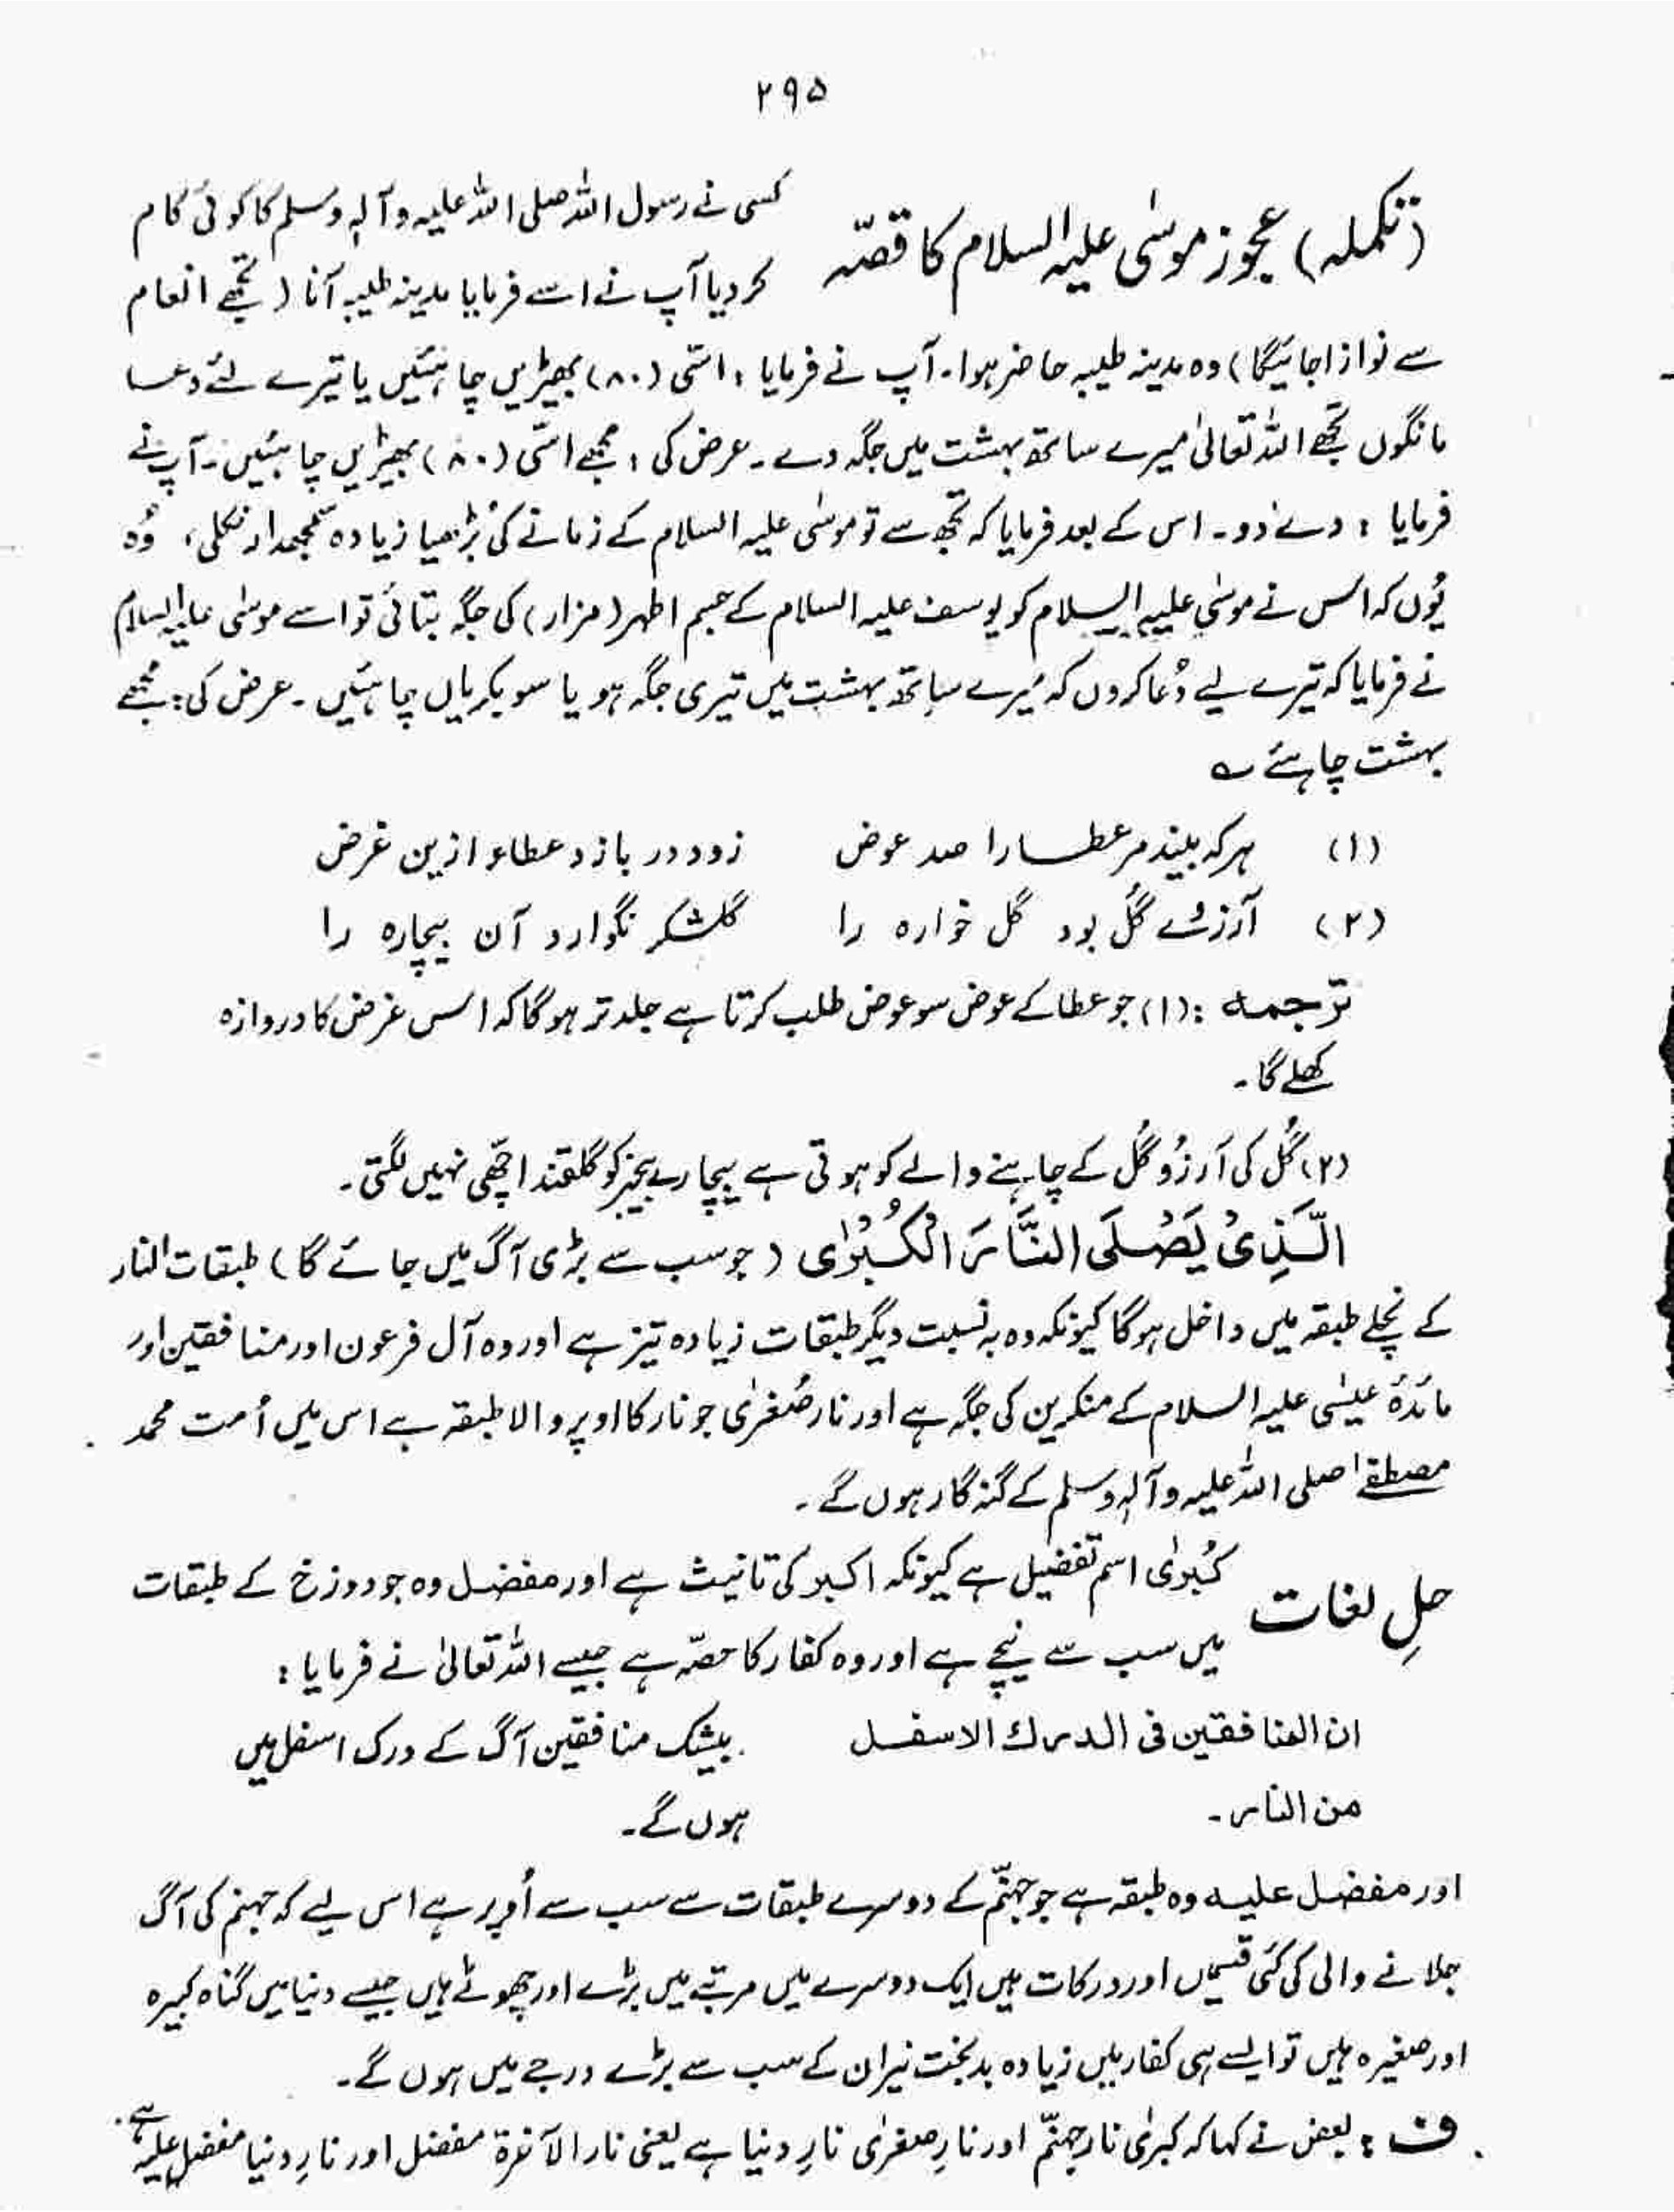 ۲۹۵
(تکملہ) عجوز موسٰی علیہ السلام کا قصّہ
کسی نے رسول اللہ صلی اللہ علیہ وآلہٖ وسلم کا کوئی کام
کر دیا آپ نے اسے فرمایا مدینہ طیبہ آنا (تجھے انعام
سے نوازا جائیگا) وہ مدینہ طیبہ حاضر ہوا۔ آپ نے فرمایا : اسّی (۸۰) بھیڑیں چاہئیں یا تیرے لئے دعا
مانگوں تجھے اللہ تعالیٰ میرے ساتھ بہشت میں جگہ دے۔ عرض کی : مجھے اسّی (۸۰) بھیڑیں چاہئیں۔ آپ نے
فرمایا : دے دو۔ اس کے بعد فرمایا کہ تجھ سے تو موسٰی علیہ السلام کے زمانے کی بُڑھیا زیادہ سمجھدار نکلی، وُہ
یُوں کہ اس نے موسٰی علیہ السلام کو یوسف علیہ السلام کے جسم اطہر (مزار) کی جگہ بتائی تو اسے موسٰی علیہ السلام
نے فرمایا کہ تیرے لیے دُعا کروں کہ میرے ساتھ بہشت میں تیری جگہ ہو یا سو بکریاں چاہئیں۔ عرض کی : مجھے
بہشت چاہئے ؎
(۱) ہر کہ بیند مر عطا را صد عوض زود در بازد عطا و ازین غرض
(۲) آرزوئے گُل بود گل خوارہ را گلشکر نگوارد آن بیچارہ را
ترجمہ : (۱) جو عطا کے عوض سو عوض طلب کرتا ہے جلد تر ہوگا کہ اس غرض کا دروازہ
کھلے گا۔
(۲) گُل کی آرزُو گُل کے چاہنے والے کو ہوتی ہے بیچارے بیخبر کو گلقند اچھّی نہیں لگتی۔
الَّذِیْ یَصْلَی النَّارَ الْکُبْرٰی (جو سب سے بڑی آگ میں جائے گا) طبقات النار
کے نچلے طبقہ میں داخل ہوگا کیونکہ وہ بہ نسبت دیگر طبقات زیادہ تیز ہے اور وہ آل فرعون اور منافقین اور
مائدۂ عیسٰی علیہ السلام کے منکرین کی جگہ ہے اور نار صُغرٰی جو نار کا اوپر والا طبقہ ہے اس میں اُمت محمد
مصطفےٰ صلی اللہ علیہ وآلہٖ وسلم کے گنہگار ہوں گے۔
حلِ لغات
کُبرٰی اسم تفضیل ہے کیونکہ اکبر کی تانیث ہے اور مفضل وہ جو دوزخ کے طبقات
میں سب سے نیچے ہے اور وہ کفار کا حصّہ ہے جیسے اللہ تعالیٰ نے فرمایا :
ان المنافقین فی الدرك الاسفل بیشک منافقین آگ کے درک اسفل میں
من النار۔ ہوں گے۔
اور مفضل علیہ وہ طبقہ ہے جو جہنّم کے دوسرے طبقات سے سب سے اُوپر ہے اس لیے کہ جہنم کی آگ
جلانے والی کی کئی قسمیں اور درکات ہیں ایک دوسرے میں مرتبے میں بڑے اور چھوٹے ہیں جیسے دنیا میں گناہ کبیرہ
اور صغیرہ ہیں تو ایسے ہی کفار میں زیادہ بدبخت نیران کے سب سے بڑے درجے میں ہوں گے۔
ف : بعض نے کہا کہ کبرٰی نارِ جہنّم اور نارِ صغرٰی نارِ دنیا ہے یعنی نار الآخرة مفضل اور نارِ دنیا مفضل علیہ ہے۔